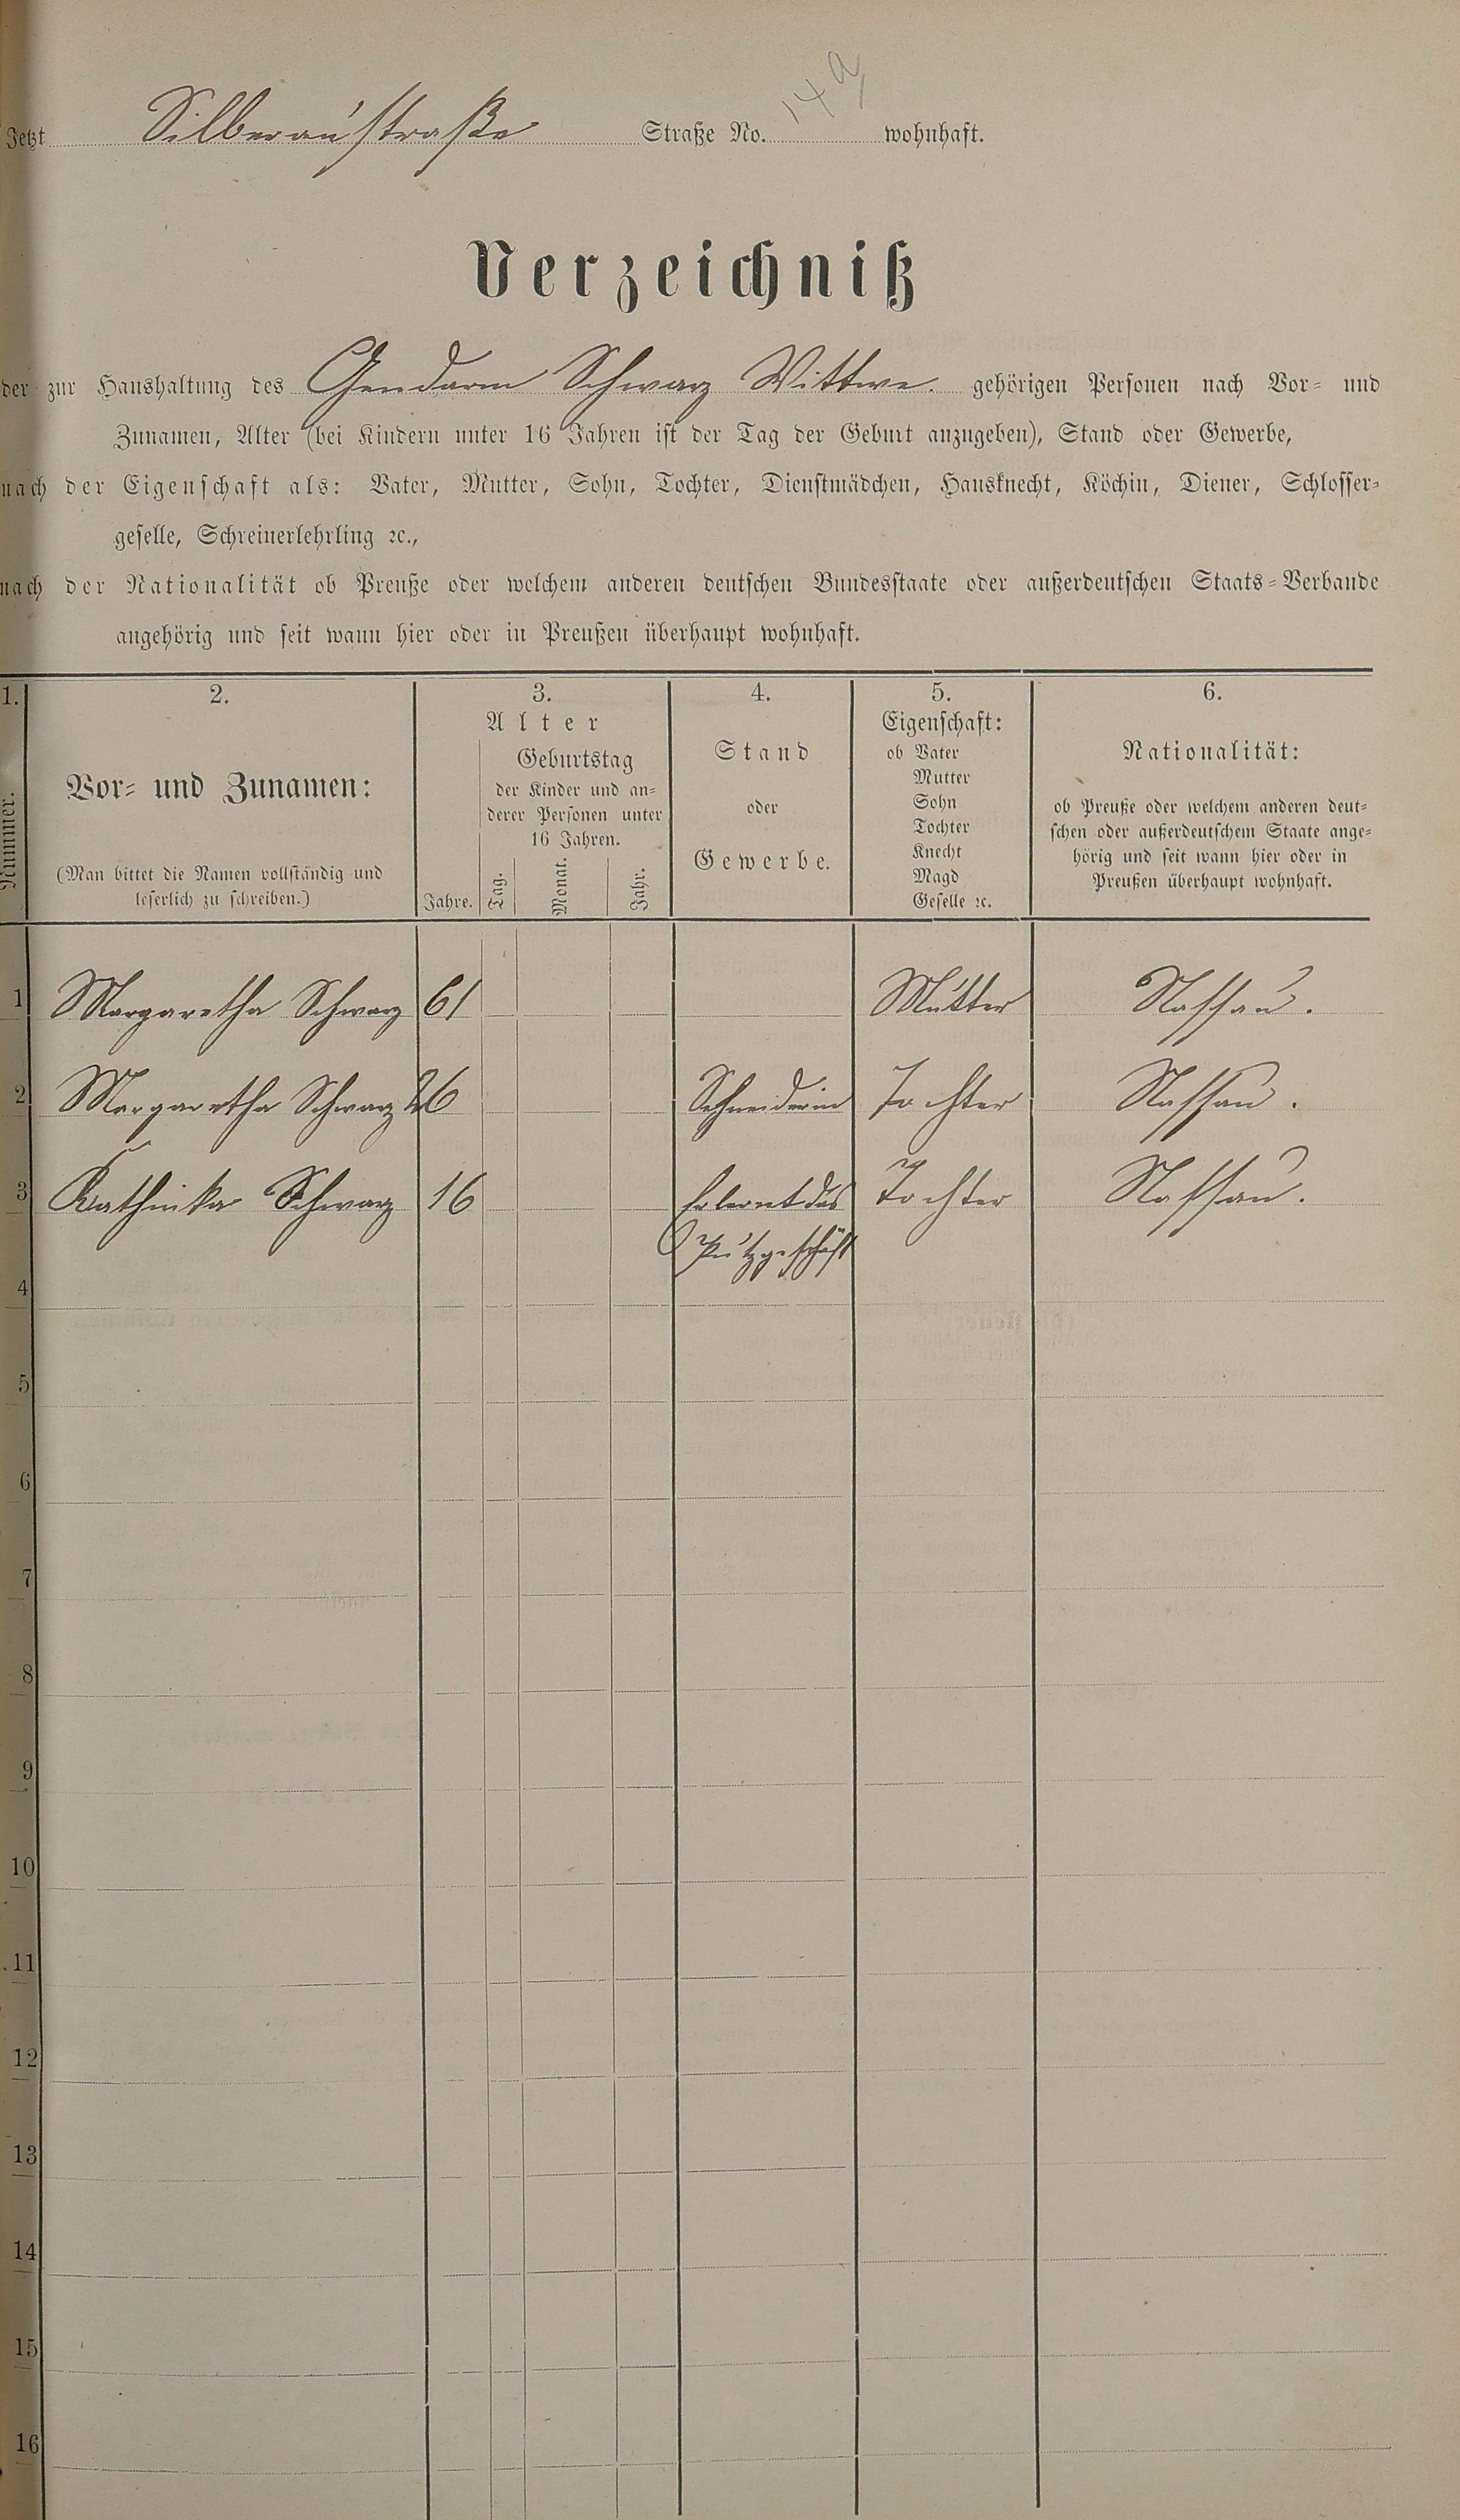 Jetzt Silberaustraße Straße No. 14a wohnhaft.
Verzeichniß
der zur Haushaltung des Gendarm Schwarz Wittwe. gehörigen Personen nach Vor= und
Zunamen, Alter (bei Kindern unter 16 Jahren ist der Tag der Geburt anzugeben), Stand oder Gewerbe,
nach der Eigenschaft als: Vater, Mutter, Sohn, Tochter, Dienstmädchen, Hausknecht, Köchin, Diener, Schlosser=
geselle, Schreinerlehrling ꝛc.,
nach der Nationalität ob Preuße oder welchem anderen deutschen Bundesstaate oder außerdeutschen Staats=Verbande
angehörig und seit wann hier oder in Preußen überhaupt wohnhaft.
1.
Nummer.
2.
Vor= und Zunamen:
(Man bittet die Namen vollständig und
leserlich zu schreiben.)
3.
Alter
Jahre.
Geburtstag
der Kinder und an=
derer Personen unter
16 Jahren.
Tag.
Monat.
Jahr.
4.
Stand
oder
Gewerbe.
5.
Eigenschaft:
ob Vater
Mutter
Sohn
Tochter
Knecht
Magd
Geselle ꝛc.
6.
Nationalität:
ob Preuße oder welchem anderen deut=
schen oder außerdeutschem Staate ange=
hörig und seit wann hier oder in
Preußen überhaupt wohnhaft.
1 Margaretha Schwarz 61 Mutter Nassau.
2 Margaretha Schwarz 26 Schneiderin Tochter Nassau.
3 Kathinka Schwarz 16 Erlernt das Tochter Nassau.
Putzgeschäft
4
5
6
7
8
9
10
11
12
13
14
15
16